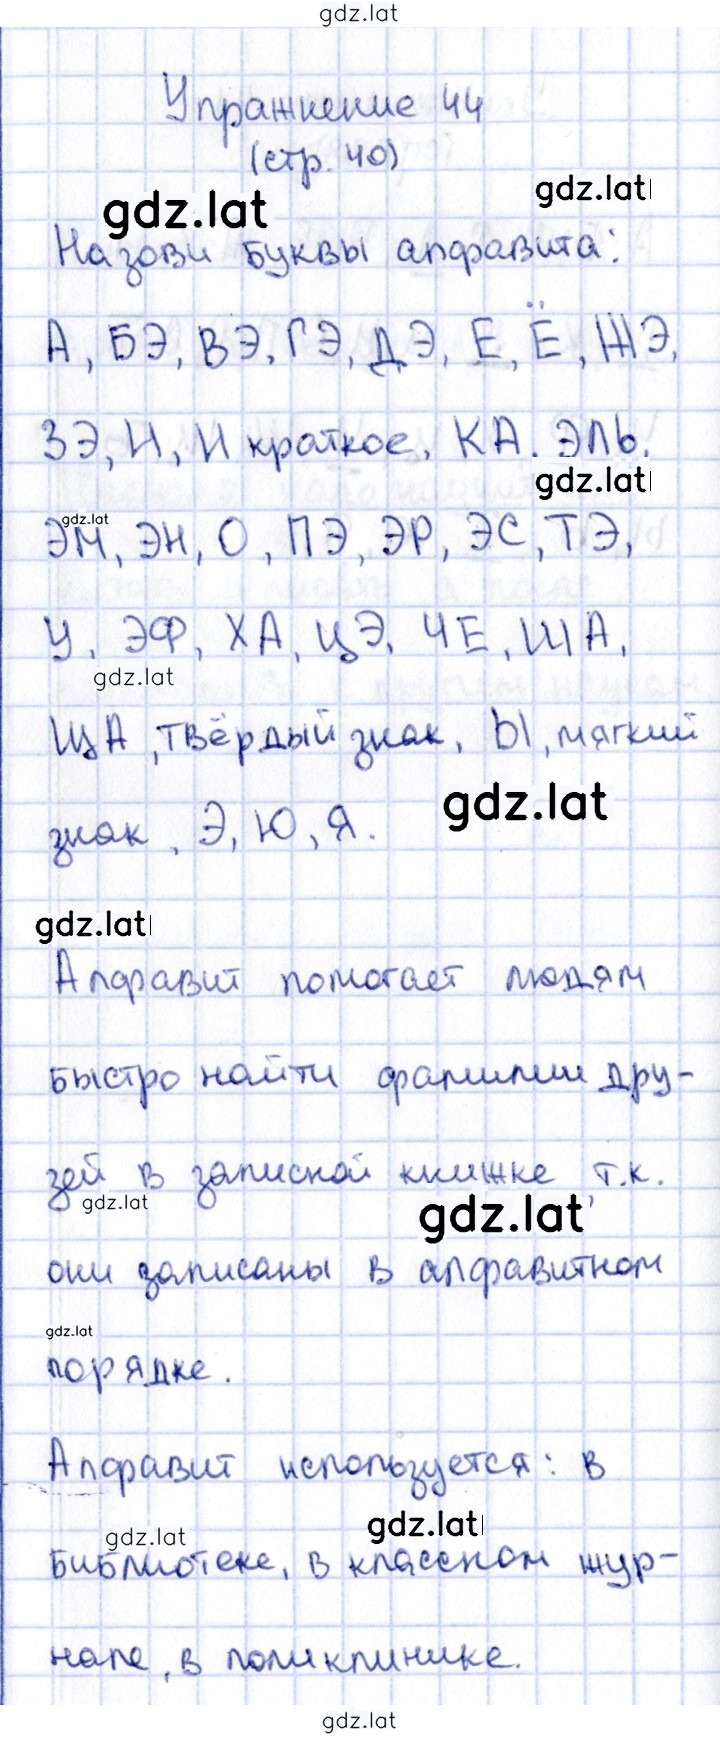 gdz.lat
Упражнение 44
(стр. 40)
gdz.lat
gdz.lat
Назови буквы алфавита:
А, БЭ, ВЭ, ГЭ, ДЭ, Е, Ё, ЖЭ,
ЗЭ, И, И краткое, КА, ЭЛЬ,
gdz.lat
gdz.lat
ЭМ, ЭН, О, ПЭ, ЭР, ЭС, ТЭ,
У, ЭФ, ХА, ЦЭ, ЧЕ, ША,
gdz.lat
ЩА, твёрдый знак, Ы, мягкий
gdz.lat
знак, Э, Ю, Я.
gdz.lat
Алфавит помогает людям
быстро найти фамилии дру-
зей в записной книжке т.к.
gdz.lat
gdz.lat
они записаны в алфавитном
gdz.lat
порядке.
Алфавит используется: в
gdz.lat
gdz.lat
библиотеке, в классном жур-
нале, в поликлинике.
gdz.lat